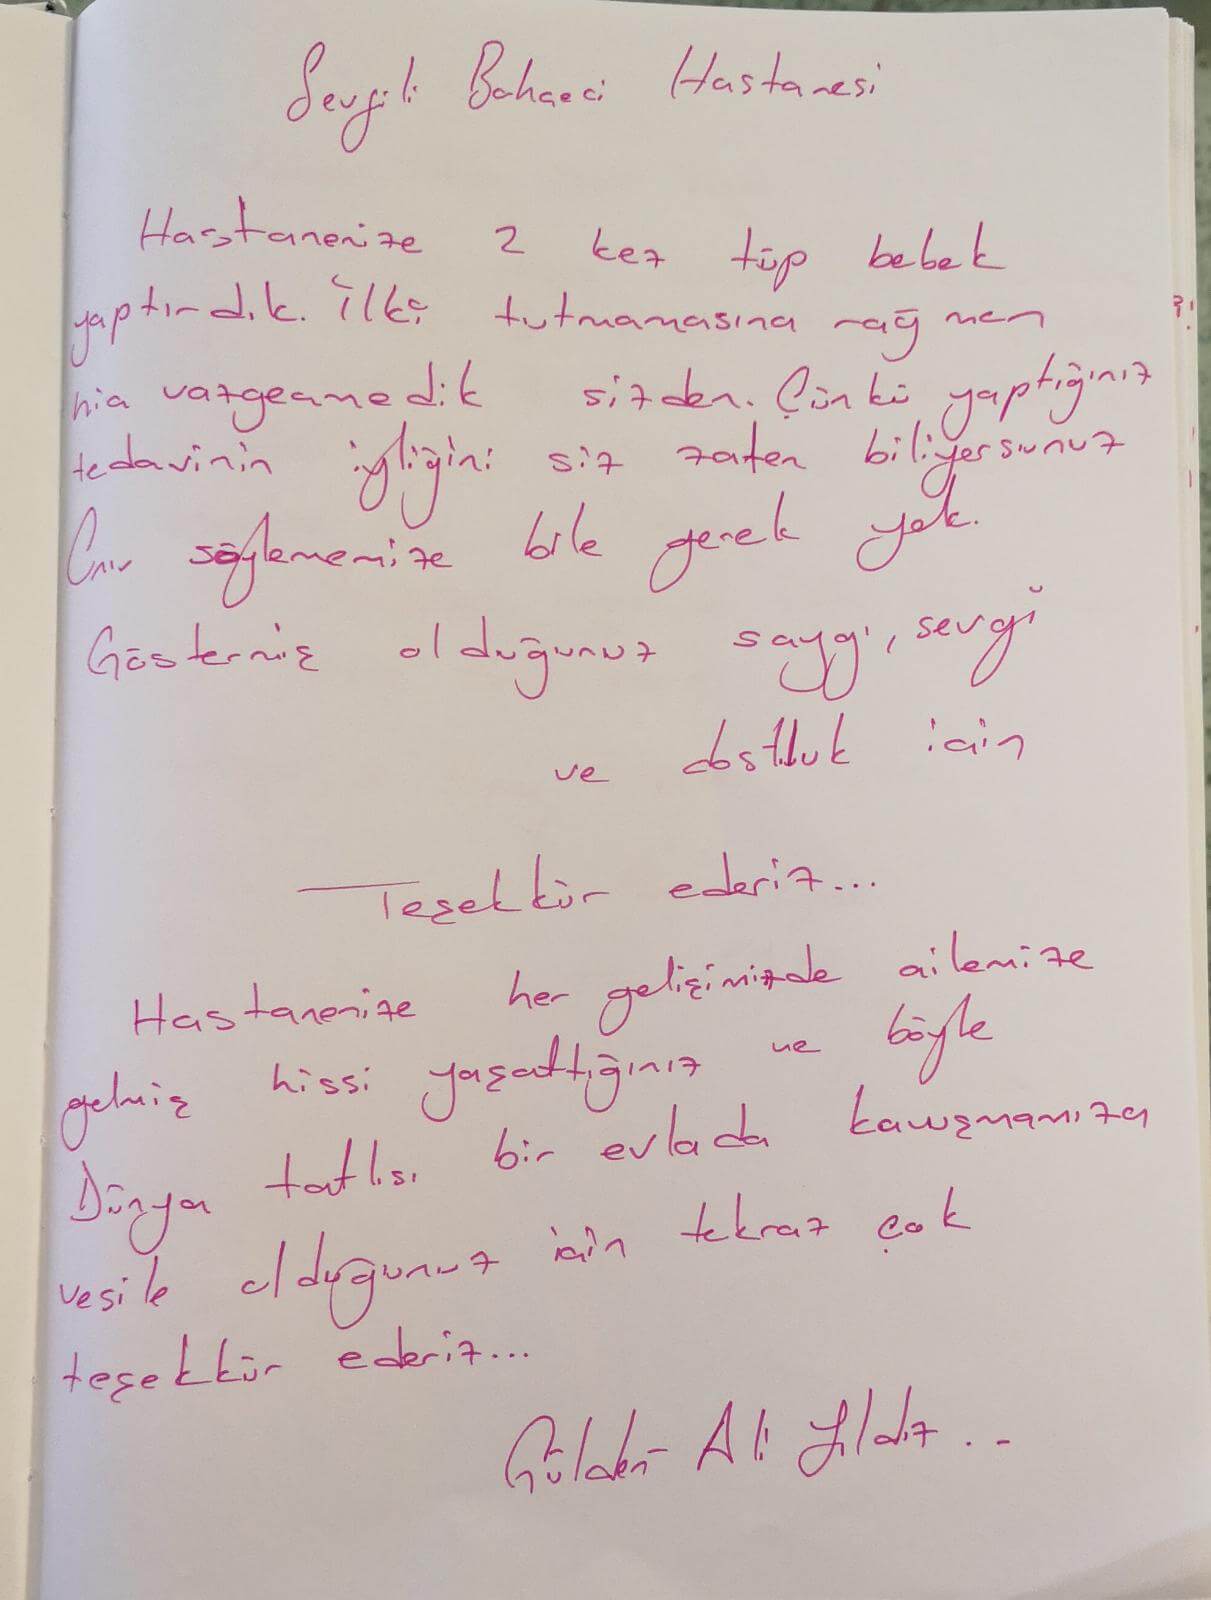 Sevgili Bahçeci Hastanesi
Hastanenize 2 kez tüp bebek
yaptırdık. İlki tutmamasına rağmen
hiç vazgeçmedik sizden. Çünkü yaptığınız
tedavinin iyiliğini siz zaten biliyorsunuz
Onu söylememize bile gerek yok.
Göstermiş olduğunuz saygı, sevgi
ve dostluk için
Teşekkür ederiz...
Hastanenize her gelişimizde ailemize
gelmiş hissi yaşattığınız ve böyle
Dünya tatlısı bir evlada kavuşmamıza
vesile olduğunuz için tekraz çok
teşekkür ederiz...
Gülden Ali Yıldız...